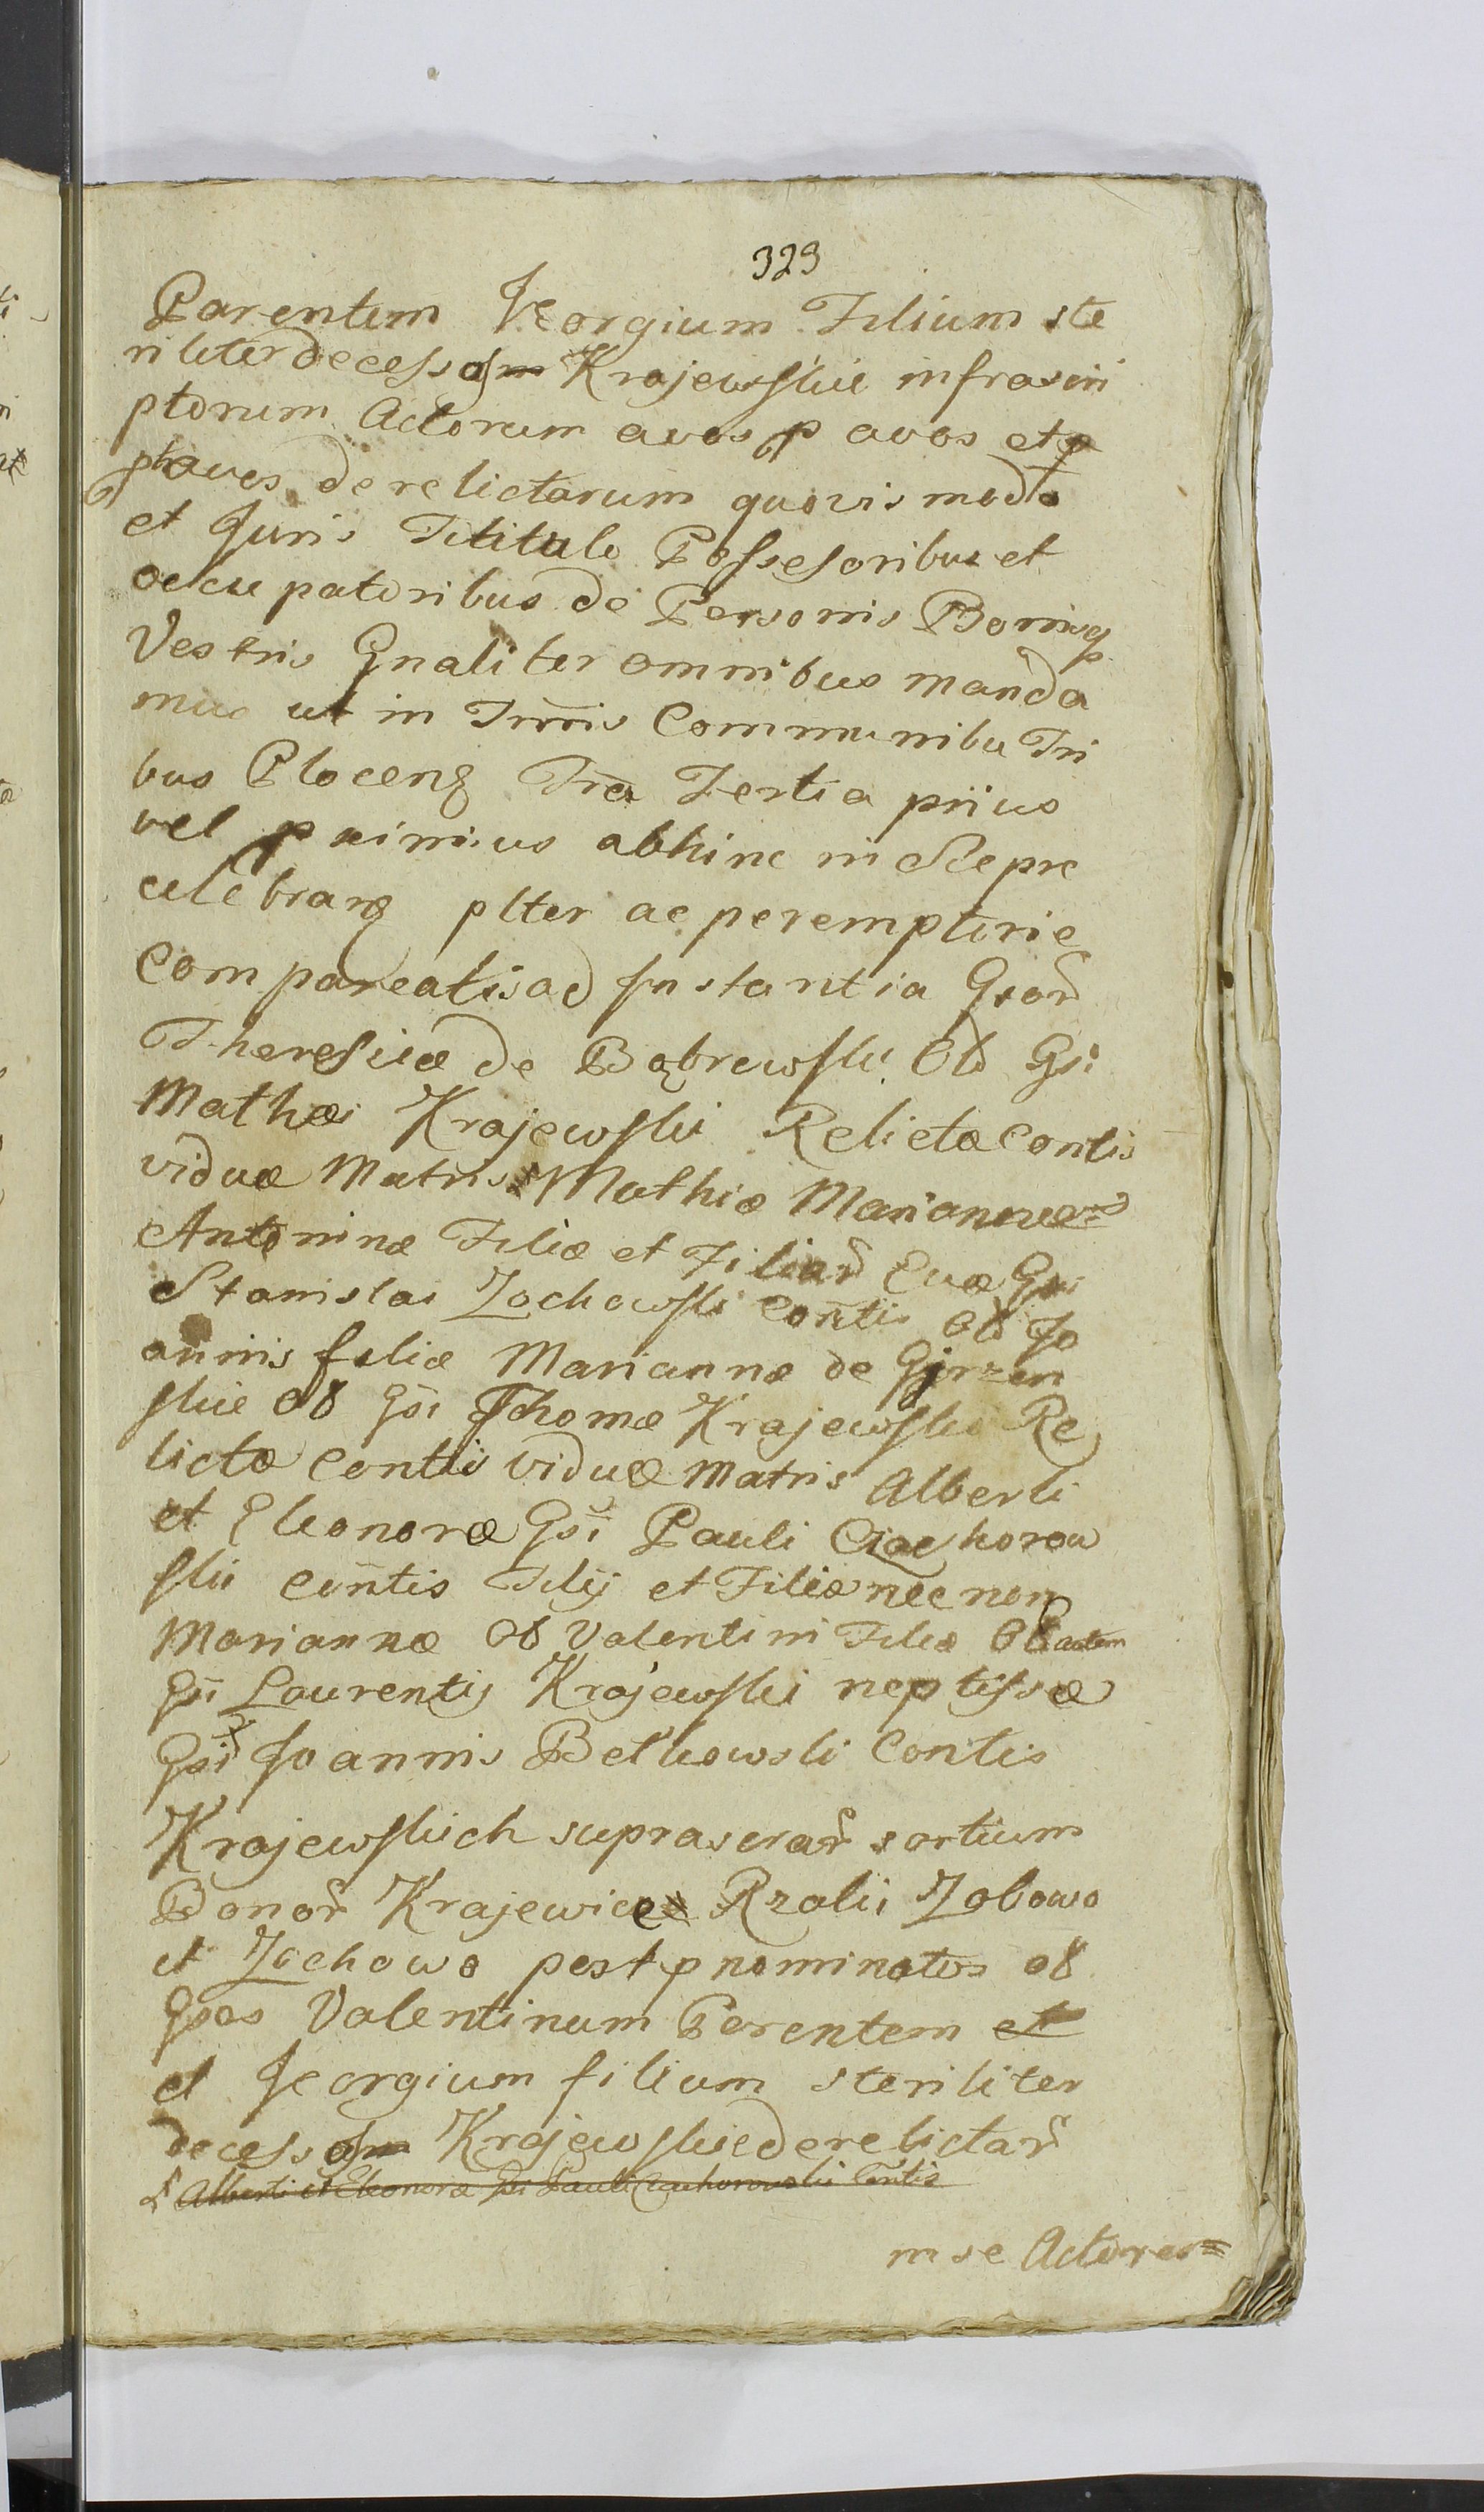 329
Parentem Georgium Filium ste
riliter decessos Krajewskie infrascri
ptorum Actorum avos p avos et p
phavos derelictarum quovis modo
et Juris Tititulo Possesoribus et
occupatoribus de Personis Bonisq
Vestris Gnaliter omnibus manda
mus ut in Trmis Communibu Tri
bus Plocen Fra Tertia prius
vel primus abhinc in Siepre
celebran plter ac peremptorie
Compareatis ad Instantia Gsor
Theresiae de Bąbrewski Olb Gsi
Mathæi Krajewski Relictæ contis
viduæ Matris Mathiæ Mariannæ
Antoninæ Filiæ et Filiar Evæ Gsi
Stanislai Zochowski Contis Olb Jo
annis filiæ Mariannæ de Gjrzen
skie Olb Gsi Thomæ Krajewski Re
lictæ contis viduæ Matris Alberti
et Eleonoræ Gsi Pauli Ciachorow
ski contis Filij et Filiæ nec non
Mariannæ Olb Valentini Filiæ Olb autem
Gsi Laurentij Krajewski neptissæ
Gsi Joannis Betkowski Contis
Krajewskich suprascrar sortium
Bonor Krajewice Rzalii Zobowo
et Zochowo post pnominatos olb
Gsos Valentinum Parentem et
et Georgium filium steriliter
decessos Krajewskie derelictar
Alberti et Eleonoræ Gsi Pauli Ciachorowski Contis
in se Actores